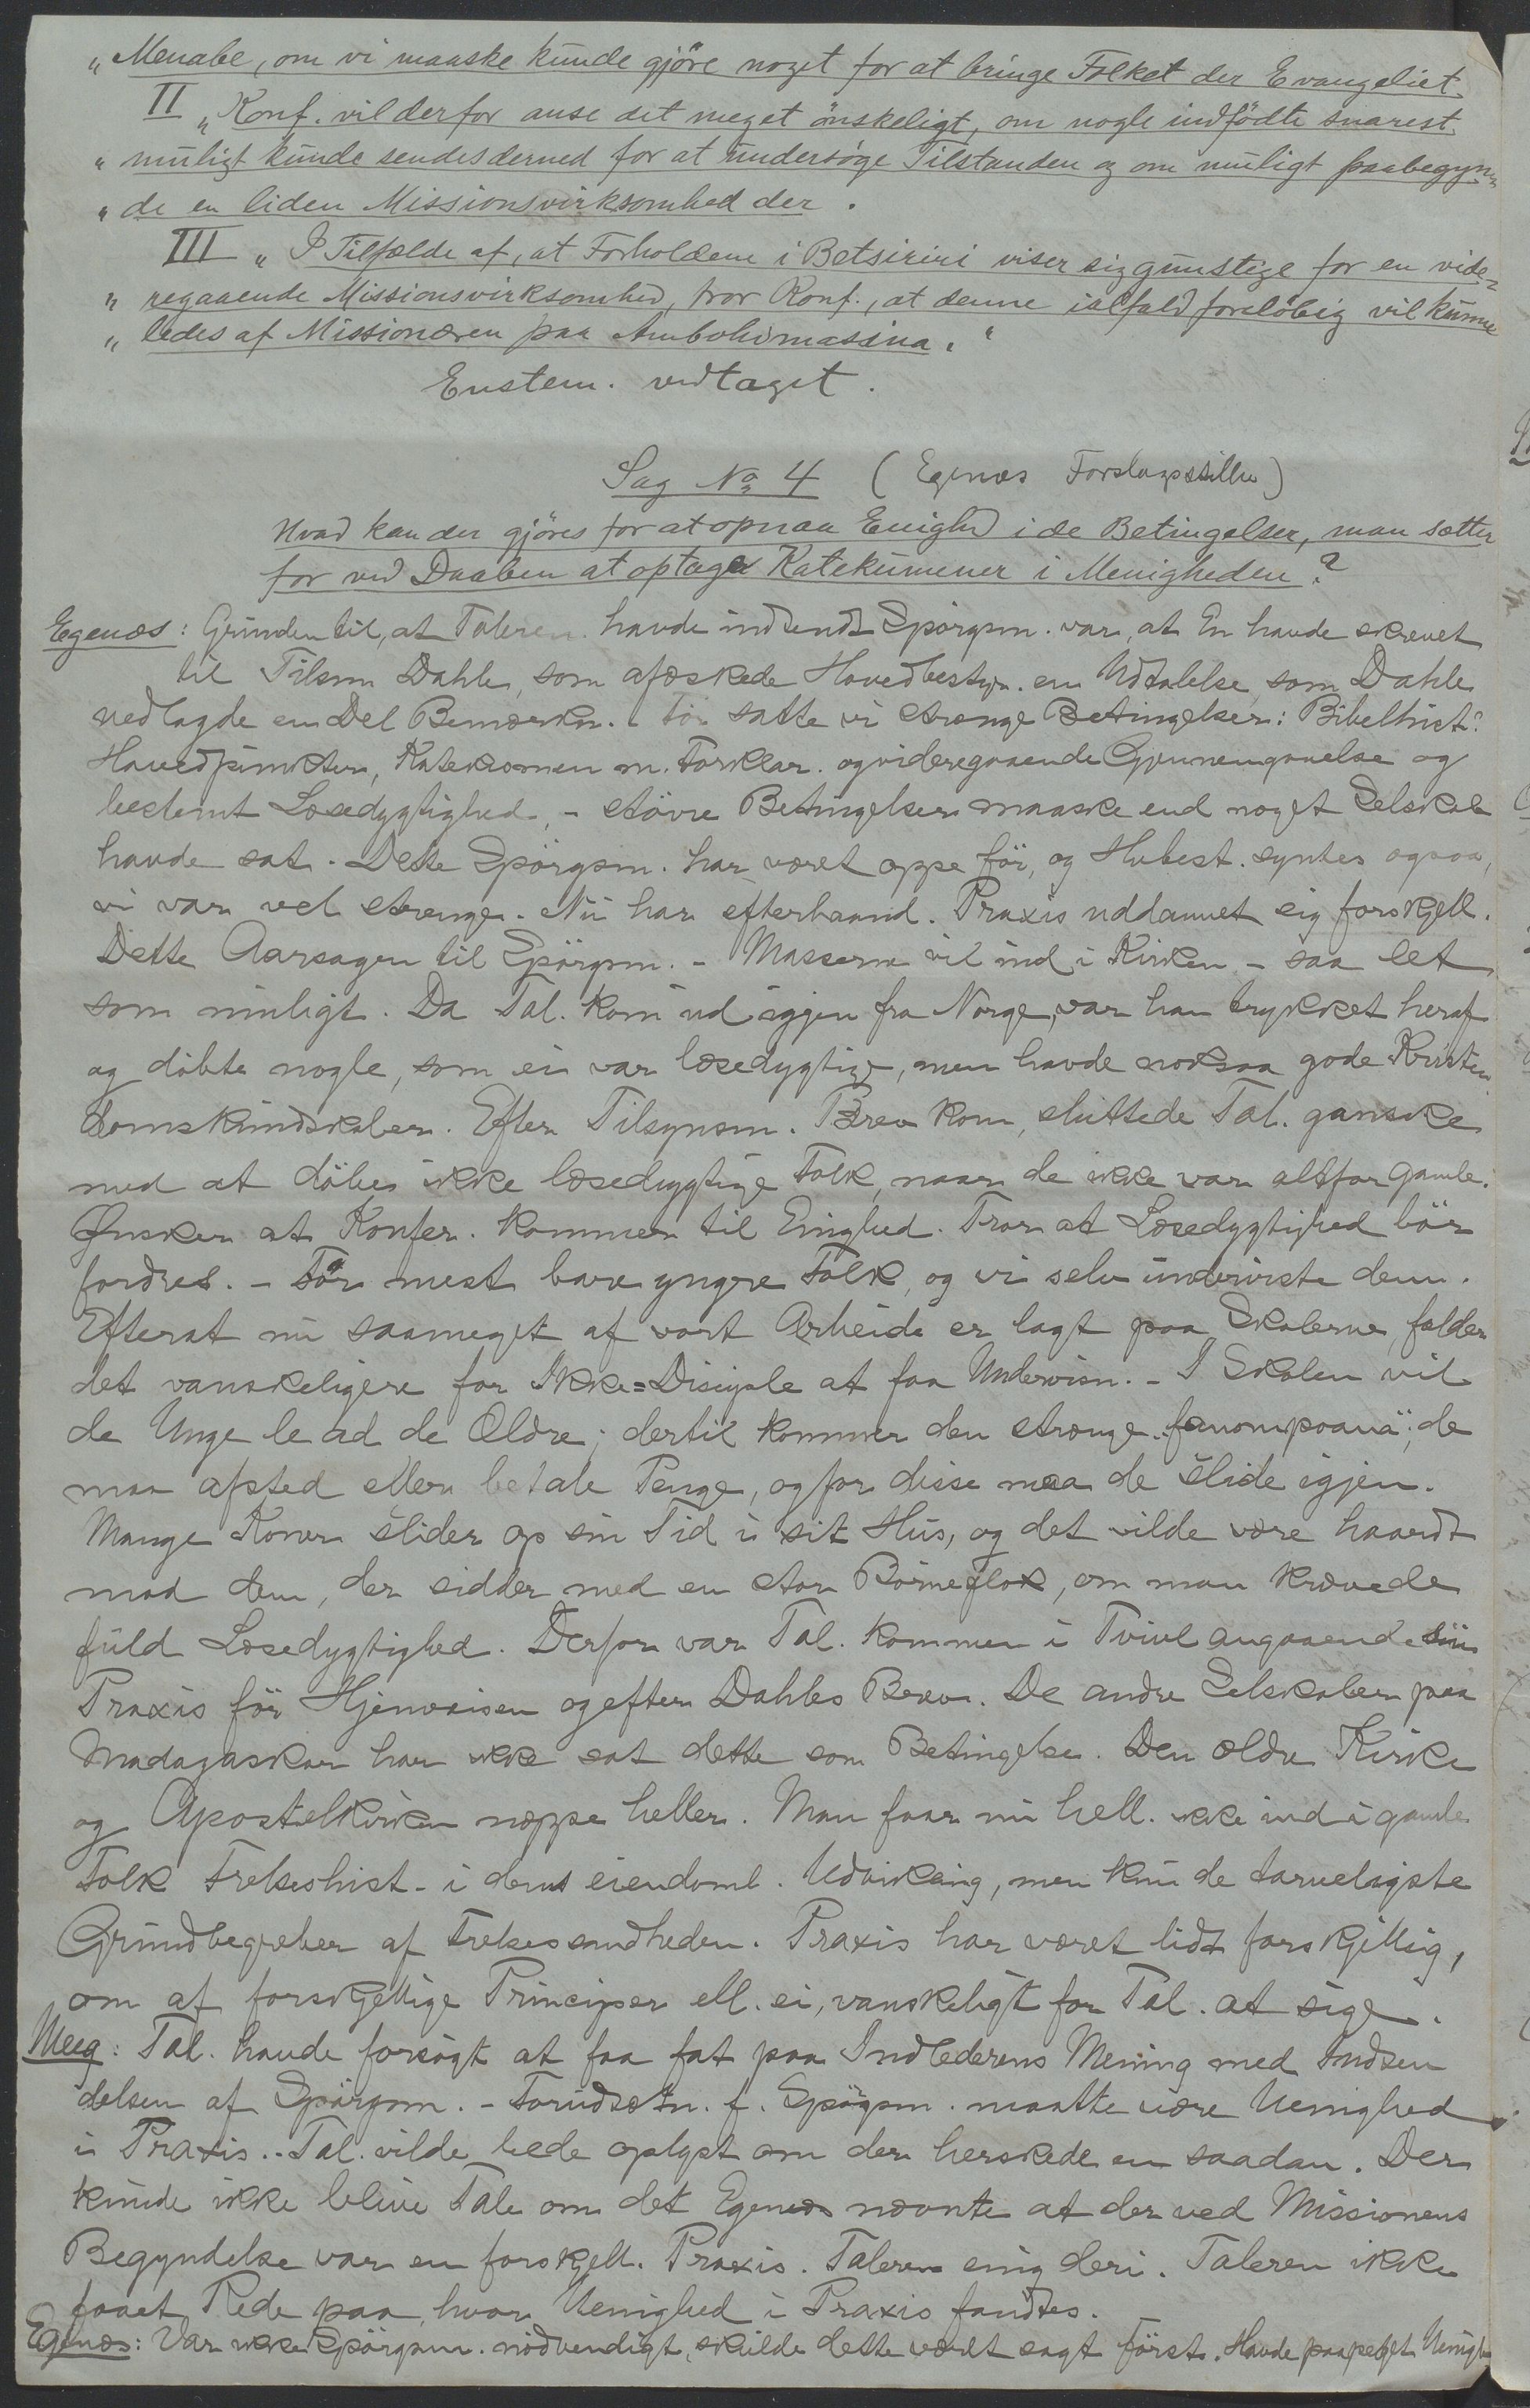 „Menabe, om vi maaske kunde gjöre noget for at bringe Folket der Evangeliet.
II „Konf. vil derfor anse det meget önskeligt, om nogle indfödte snarest
„ muligt kunde sendes derned for at undersöge Tilstanden og om muligt paabegyn-
„ de en liden Missionsvirksomhed der.
III „I Tilfælde af, at Forholdene i Betsiriri viser sig gunstige for en vide-
„ regaaende Missionsvirksomhed, tror Konf., at denne ialfald foreløbig vil kunne
„ ledes af Missionæren paa Ambohimasina."
Enstem. vedtaget.
Sag No 4 (Egenæs Forslagsstiller)
Hvad kan der gjöres for at opnaa Enighed i de Betingelser, man sætter
for ved Daaben at optage Katekumener i Menigheden?
Egenæs: Grunden til, at Taleren havde indsendt Spörgsm. var, at En havde skrevet
til Tilsm Dahle, som afæskede Hovedbestyr. en Udtalelse, som Dahle
vedlagde en Del Bemærkn. För satte vi strænge Betingelser: Bibelhist.
Hovedpunkter, Katekismen m. Forklar. og videregaaende Gjennemgaaelse og
bestemt Læsedygtighed, - större Betingelser maaske end noget Selskab
havde sat. Dette Spörgsm. har været oppe för, og Hvbest. syntes ogsaa,
vi var vel strenge. Nu har efterhaand. Praxis uddannet sig forskjell.
Dette Aarsagen til Spörgsm. - Masserne vil ind i Kirken - saa let
som muligt. Da Tal. kom ud igjen fra Norge, var han trykket heraf
og döbte nogle, som ei var læsedygtige, men havde noksaa gode Kristen
domskundskaber. Efter Tilsynsm. Brev kom, sluttede Tal. ganske
med at döbe ikke læsedygtige Folk, naar de ikke var altfor gamle.
Ønsker at Konfer. kommer til Enighed. Tror at Læsedygtighed bör
fordres. - För mest bare yngre Folk, og vi selv underviste dem.
Efterat nu saameget af vort Arbeide er lagt paa Skolerne, falder
det vanskeligere for Ikke=Disciple at faa Undervisn. - I Skolen vil
de Unge le ad de Ældre; dertil kommer den strænge „fanompoana"; de
maa afsted eller betale Penge, og for disse maa de slide igjen.
Mange Koner slider op sin Tid i sit Hus, og det vilde være haardt
mod dem, der sidder med en stor Börneflok, om man krævede
fuld Læsedygtighed. Derfor var Tal. kommen i Tvivl angaaende sin
Praxis för Hjemreisen og efter Dahles Brev. De andre Selskaber paa
Madagaskar har ikke sat dette som Betingelse. Den ældre Kirke
og Apostelkirken næppe heller. Man faar nu hell. ikke ind i gamle
Folk Frelseshist. i dens eiendoml. Udvikling, men kun de tarveligste
Grundbegreber af Frelsessandheden. Praxis har været lidt forskjellig,
om af forskjellige Principer ell. ei, vanskeligt for Tal. at sige.
Meeg: Tal. havde forsögt at faa fat paa Indlederens Mening med Indsen
delsen af Spörgsm. - Forudsætn. f. Spörgsm. maatte være Uenighed
i Praxis. - Tal. vilde bede oplyst om der herskede en saadan. Der
kunde ikke blive Tale om det Egenæs nævnte at der ved Missionens
Begyndelse var en forskjell. Praxis. Taleren enig deri. Taleren ikke
faaet Rede paa, hvor Uenighed i Praxis fandtes.
Egenæs: Var ikke Spörgsm. nödvendigt, skulde dette været sagt först. Havde paapeget Uenigh